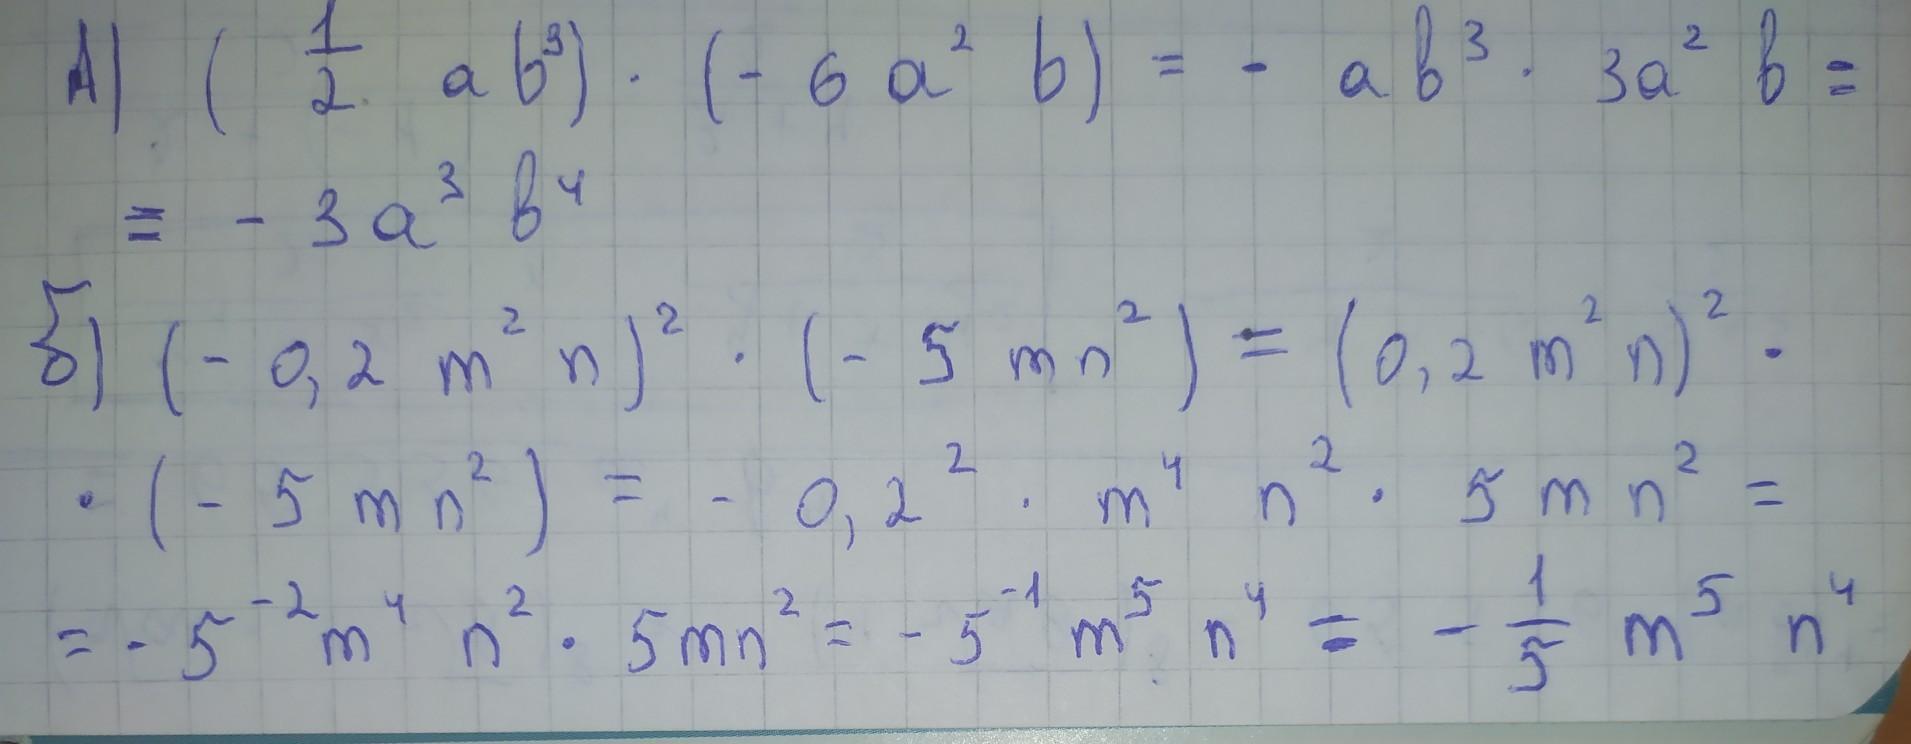 А) (1/2 ab³) · (- 6a² b) = - ab³ · 3a² b =
= - 3a³ b⁴
б) (- 0,2 m² n)² · (- 5 mn²) = (0,2 m² n)² ·
· (- 5 mn²) = - 0,2² · m⁴ n² · 5 m n² =
= - 5⁻² m⁴ n² · 5mn² = - 5⁻¹ m⁵ n⁴ = - 1/5 m⁵ n⁴